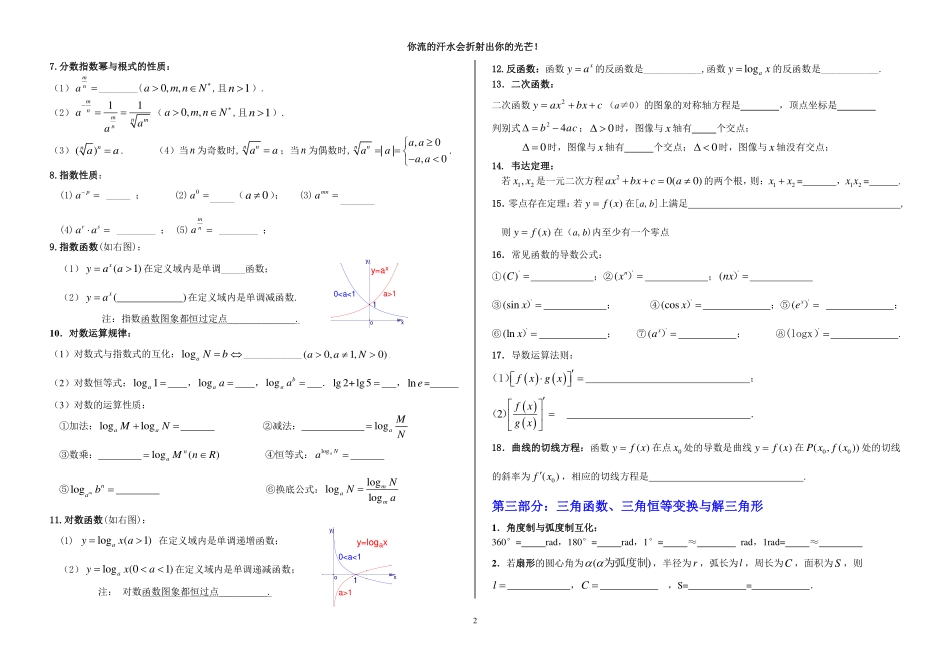 你流的汗水会折射出你的光芒!
7.分数指数幂与根式的性质:
(1) a^{m/n} =________(a>0,m,n∈N*,且n>1).
(2) a^{-m/n} = 1/a^{m/n} = 1/ⁿ√a^m (a>0,m,n∈N*,且n>1).
(3) (ⁿ√a)^n = a. (4)当n为奇数时, ⁿ√a^n = a;当n为偶数时, ⁿ√a^n =|a|= {a,a≥0 -a,a<0 .
8.指数性质:
(1) a^{-p} = _____ ; (2) a^0 =_____ (a≠0); (3) a^{mn} =_______
(4) a^r·a^s = ________ ; (5) a^{m/n} = ________ ;
9.指数函数(如右图):
(1) y=a^x(a>1)在定义域内是单调_____函数;
(2) y=a^x(____________)在定义域内是单调减函数.
注:指数函数图象都恒过定点______________.
y
y=a^x
0<a<1
a>1
1
o
x
10.对数运算规律:
(1)对数式与指数式的互化: log_a N=b⇔____________(a>0,a≠1,N>0)
(2)对数恒等式: log_a 1=____, log_a a=____, log_a a^b=___. lg 2+lg 5=___, ln e=______
(3)对数的运算性质:
①加法: log_a M+log_a N=_______ ②减法:_____________=log_a M/N
③数乘:__________=log_a M^n (n∈R) ④恒等式: a^{log_a N}=_______
⑤log_{a^m} b^n=_________ ⑥换底公式: log_a N= log_m N/log_m a
11.对数函数(如右图):
(1) y=log_a x(a>1) 在定义域内是单调递增函数;
(2) y=log_a x(0<a<1)在定义域内是单调递减函数;
注: 对数函数图象都恒过点___________.
y
y=log_a x
0<a<1
o
1
x
a>1
12.反函数:函数 y=a^x 的反函数是____________,函数 y=log_a x 的反函数是____________.
13.二次函数:
二次函数 y=ax²+bx+c (a≠0)的图象的对称轴方程是________,顶点坐标是________
判别式Δ=b²-4ac;Δ>0时,图像与x轴有_____个交点;
Δ=0时,图像与x轴有______个交点;Δ<0时,图像与x轴没有交点;
14. 韦达定理:
若x₁,x₂是一元二次方程ax²+bx+c=0(a≠0)的两个根,则:x₁+x₂=_______,x₁x₂=______.
15.零点存在定理:若 y=f(x)在[a,b]上满足____________________________________________,
则 y=f(x)在(a,b)内至少有一个零点
16.常见函数的导数公式:
①(C)'=_____________;②(x^n)'=_____________;(nx)'=_____________
③(sin x)'=_____________; ④(cos x)'=______________;⑤(e^x)'=______________;
⑥(ln x)'=______________; ⑦(a^x)'=____________; ⑧(logx)'=______________.
17.导数运算法则:
(1)[f(x)·g(x)]'=__________________________________;
(2)[f(x)/g(x)]'= ______________________________________.
18.曲线的切线方程:函数 y=f(x)在点x₀处的导数是曲线 y=f(x)在P(x₀,f(x₀))处的切线
的斜率为 f'(x₀),相应的切线方程是________________________________.
第三部分:三角函数、三角恒等变换与解三角形
1.角度制与弧度制互化:
360°=_____rad,180°=_____rad,1°=_____≈________ rad,1rad=_____≈_________
2.若扇形的圆心角为α(α为弧度制),半径为r,弧长为l,周长为C,面积为S,则
l=_____________,C=____________ ,S=____________=____________.
2